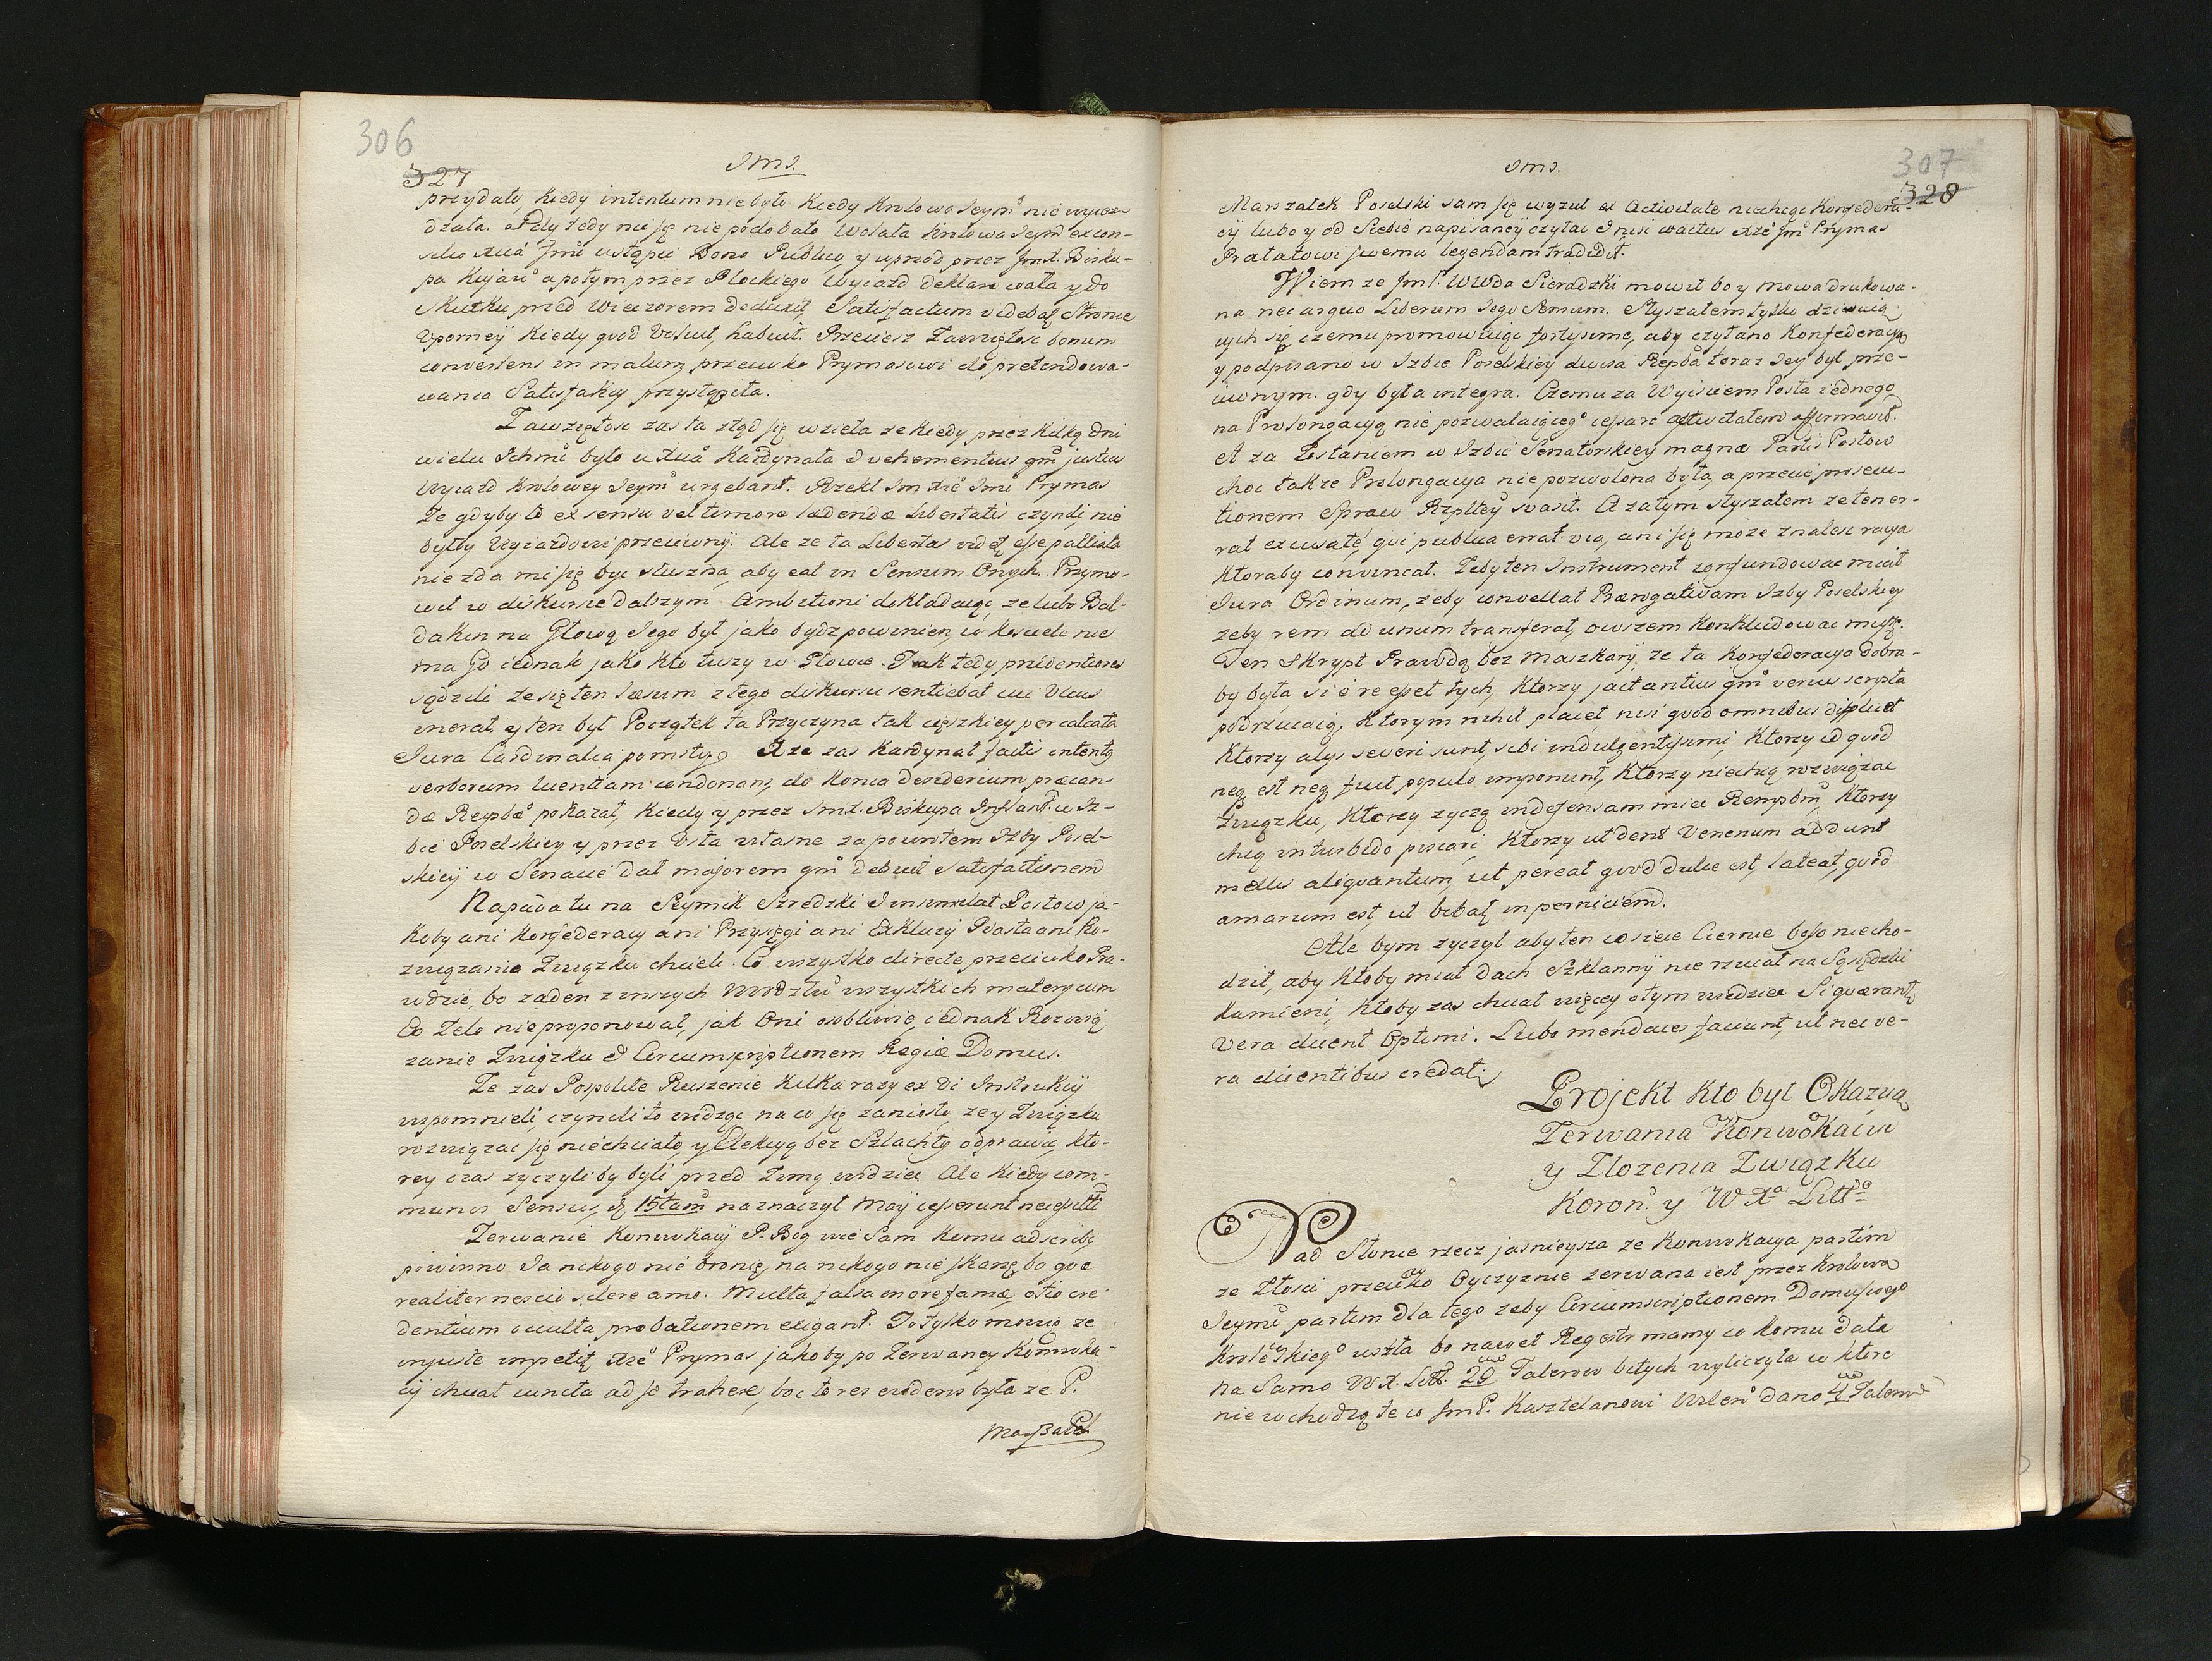 306
327
Sms.
przydało, kiedy intentum nie było kiedy Krolowa Seym nie wyież-
dzała. Gdy tedy nic się nie podobało Wolała Krolowa Seym ex con-
silio Xcia Jmci ustąpić Bono Publico, y uprzod przez Jm X. Bisku-
pa Kujaw. a potym przez Płockiego Wyiazd deklarowała y do
skutku przed Wieczorem deduxit, Satisfactum videbat Stronie
Uporney kiedy quod Voluit, habuit. Przeciesz Zawziętosc bonum
convertens in malum przeciwko Prymasowi do pretendowa-
nia Satisfakcy przystąpiła.
Zawziętosc zas ta ztąd się wzieła ze kiedy przez kilką dni
wielu Ichmci było u Xcia Kardynała & vehementius qm justius
Wyiazd Krolowey Seym urgebant. Rzekł Jm Xże Jmc Prymas
Ze gdyby to ex sensu vel timore lædendæ Libertatis czynili, nie
byłby Wyiazdowi przeciwny. Ale ze ta Libertas videt esse palliata
nie zda mi się byc słuszna, aby eat in Sensum Onych. Przymo-
wił w diskursie dalszym Ambitioni dokładaiąc, ze lubo Bal-
dakin na Głową Jego był jako bydz powinien w kosciele nie
ma Go iednak jako kto tuszy w Głowie. Tak tedy prudentiores
sądzili ze się ten læsum z tego diskursu sentiebat cui Ulcus
inerat, y ten był Początek ta Przyczyna tak cięszkiey per calcata
Jura Cardinalia pomsty. Xze zas Kardynał factis intenty
verborum licentiam condonans, do konca desiderium pracan-
dæ Reipbæ pokazał, kiedy y przez Jm X. Biskupa Inflant. w Iz-
bie Poselskiey y przez Usta własne za powrotem Izby Posel-
skiey w Senacie dał majorem qm debuit satisfactionem
Napada tu na Seymik Szredzki & insimulat Posłow ja-
koby ani Konfederacy ani Przysięgi ani Exkluzy Piasta ani Ro-
związania Związku chcieli. Co wszytko directe przeciwko Pra-
wdzie, bo zaden z inszych Wwdztw wszystkich materyi cum
Eo Zelo nie proponował, jak Oni osobliwie, iednak Rozwią
zanie Związku & Circumscriptionem Regiæ Domus.
Ze zas Pospolite Ruszenie kilka razy ex vi Instrukcij
wspomnieli, czynili to widząc na co się zaniosło, ze y Związku
rozwiązac się niechciało, y Elekcyą bez Szlachty odprawic, kto-
rey czas zyczyliby byli przed Zimą widziec. Ale kiedy com-
munis Sensus, 15tam naznaczył Maij cesserunt necessitti
Zerwanie Konwokacij P. Bog wie Sam komu adscribi
powinno Ja nikogo nie bronię, na nikogo nie skarzę bo quæ
realiter nescio silere amo. Multa falsa more famæ, otio cre-
dentium occulta probationem exigant. To tylko mowię ze
injuste impetit Xże Prymas jakoby po Zerwaney Konwoka-
cij chciał cuncta ad se trahere, boc to res evidens była ze P.
Marszałek
307
328
Sms.
Marszałek Poselski sam się wyzuł ex Activitate niechcąc Konfedera-
cij lubo y od Siebie napisaney czytac & nisi coactus Xże Jmc Prymas
Prałatowi swemu legendam tradidit.
Wiem ze Jm P. Wwda Sieradzki mowił bo y mowa drukowa-
na nec arguo Liberum Jego Sensum. Słyszałem tylko dziwuią
cych się czemu promowuiąc fortissime, aby czytano Konfederacyą
y podpisano w Izbie Poselskiey divisa Repba teraz Jey był prze-
ciwnym gdy była integra. Czemu za Wyiściem Posła iednego
na Prolongacyą nie pozwalaiącego cessare activitatem affirmavit.
et za Zostaniem w Izbie Senatorskiey magnæ Partis Posłow
choc takze Prolongacya nie pozwolona była, a przecię prosecu-
tionem Spraw Rzpltey svasit. A zatym słyszałem ze ten er-
rat excusate qui publica errat via, ani się moze znalesc racya
ktoraby convincat. Zeby ten Instrument confundowac miał
Jura Ordinum, zeby convellat Prærogativam Izby Poselskiey
zeby rem ad unum transferat, owszem konkludowac muszę.
Ten Skrypt Prawdą bez maszkary, ze ta Konfederacya dobra-
by była si e re esset tych, ktorzy jactantius qm verius scripta
podrzucaią, ktorym nihil placet nisi quod omnibus displicet
ktorzy alys severi sunt, sibi indulgentissimi, ktorzy id quod
neq est neq fuit populo imponunt, ktorzy niechcą rozwiązac
Związku, ktorzy zyczą indefensam mieć Rempbm, ktorzy
chcą in turbido piscari, ktorzy ut dent Venenum addunt
mellis aliquantum, ut pereat quod dulce est, lateat, quod
amarum est, ut bibat in perniciem.
Ale bym zyczył aby ten co sieie Ciernie boso niecho-
dził, aby ktoby miał Dach Szklanny nie rzucał na Sąsiedzki
kamieni, ktoby zas chciał więcey o tym wiedziec Si quærant
vera dicent Optimi. Lubo mendaces faciunt, ut nec ve-
ra dicentibus credat.
Projekt kto był Okazyą
Zerwania Konwokacij
y Złozenia Związku
Koron. y W Xa Litt.
Nad Słonce rzecz jasnieysza ze Konwokacya partim
ze Złosci przeciwko Oyczyznie zerwana iest przez Krolowa
Seym partim dla tego zeby Circumscriptionem Domus Jego
Krolewskiego uszła bo nawet Regestr mamy co komu dała
na Samo W.X. Litt. 20 Talerow bitych wyliczyła w ktore
nie wchodzą te co Jm P. Kasztelanowi Wileń dano 4 Talerow